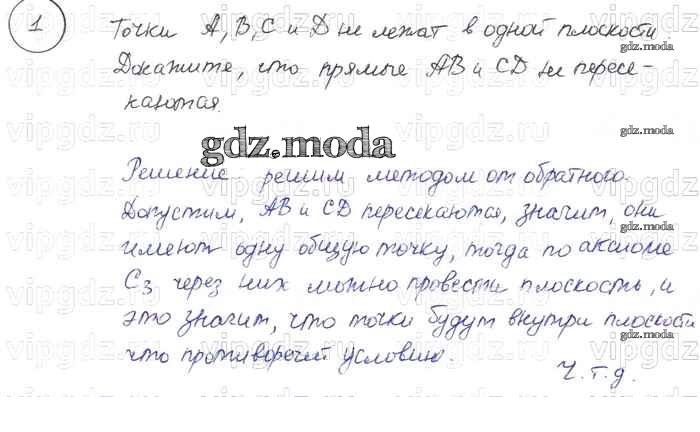 1 Точки A, B, C и D не лежат в одной плоскости.
Докажите, что прямые AB и CD не пересе-
каются.
gdz.moda
Решение: решим методом от обратного.
Допустим, AB и CD пересекаются, значит, они
имеют одну общую точку, тогда по аксиоме
C3 через них можно провести плоскость, и
это значит, что точки будут внутри плоскости
что противоречит условию.
Ч.т.д.